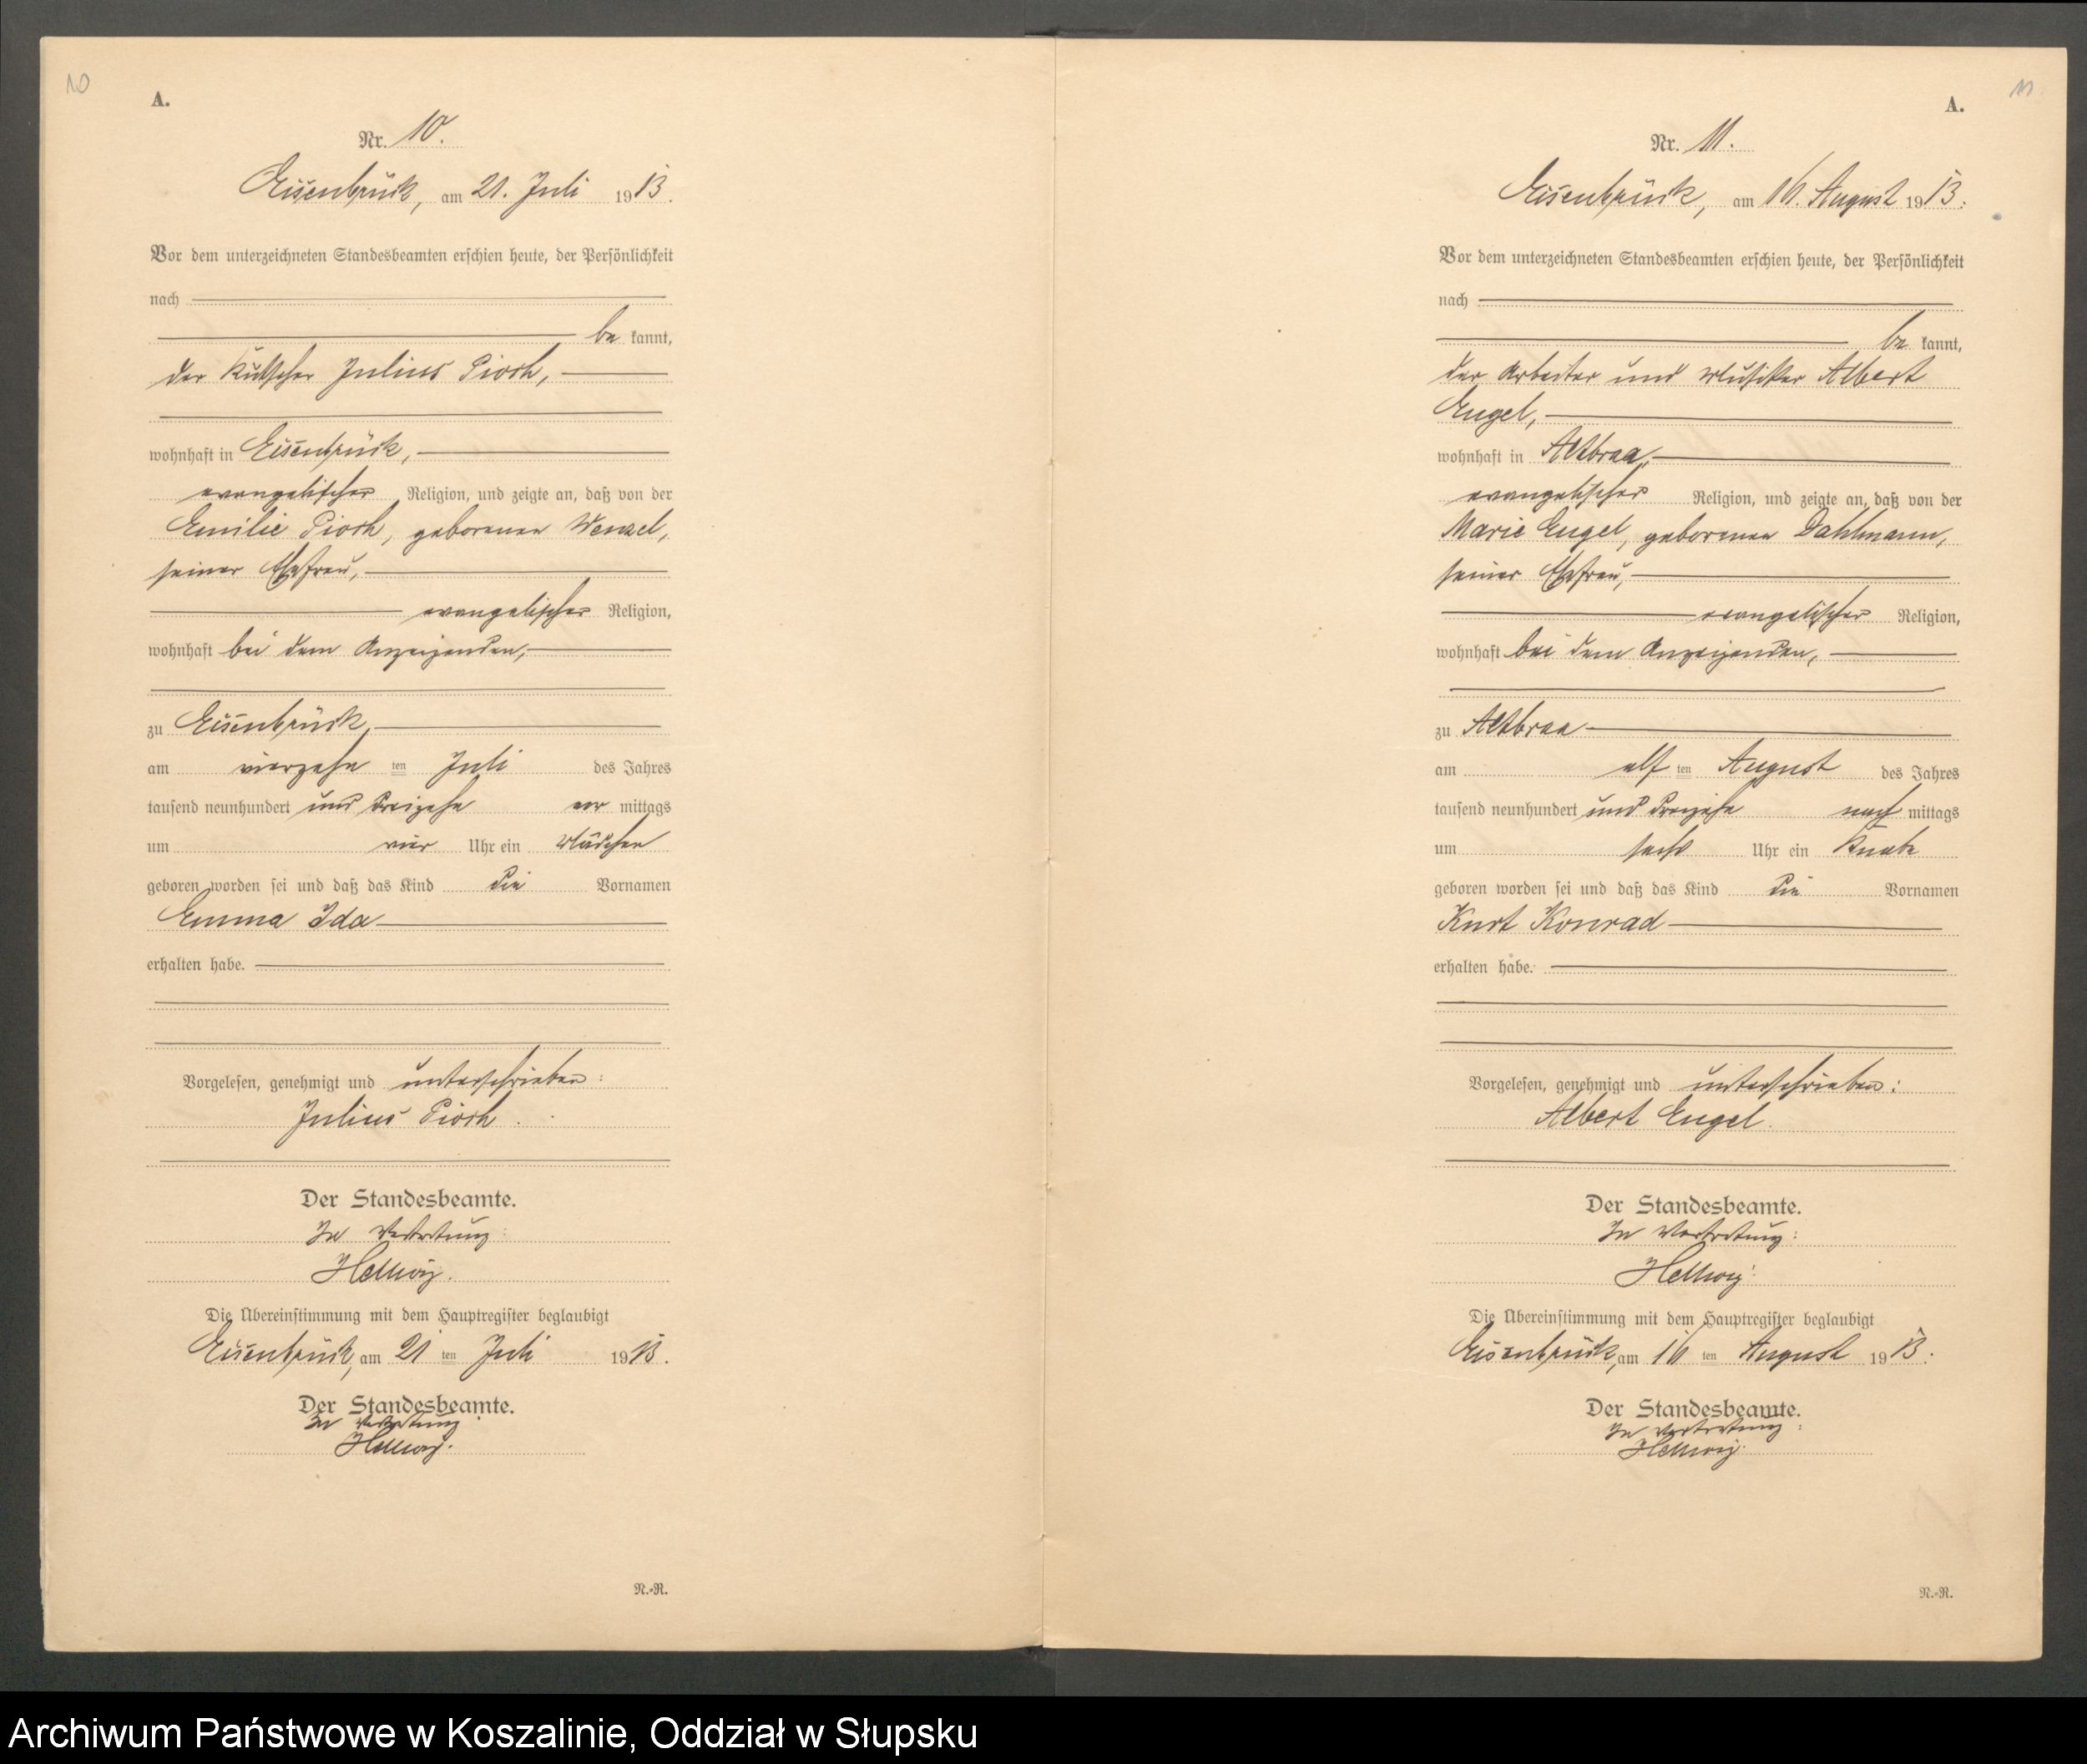 10
A.
Nr. 10.
Eisenbrück, am 21. Juli 1913.
Vor dem unterzeichneten Standesbeamten erschien heute, der Persönlichkeit
nach
be kannt,
der Kutscher Julius
wohnhaft in Eisenbrück,
evangelischer Religion, und zeigte an, daß von der
Emilie geborenen Wenzel,
seiner Ehefrau,
evangelischer Religion,
wohnhaft bei dem Anzeigenden,
zu Eisenbrück,
am vierzehn ten Juli des Jahres
tausend neunhundert und dreizehn vor mittags
um vier Uhr ein Mädchen
geboren worden sei und daß das Kind die Vornamen
Emma Ida
erhalten habe.
Vorgelesen, genehmigt und unterschrieben:
Julius
Der Standesbeamte.
In Vertretung:
Hellwig.
Die Übereinstimmung mit dem Hauptregister beglaubigt
Eisenbrück, am 21 ten Juli 1913.
Der Standesbeamte.
In Vertretung:
Hellwig.
N.-R.
11
A.
Nr. 11.
Eisenbrück, am 16. August 1913.
Vor dem unterzeichneten Standesbeamten erschien heute, der Persönlichkeit
nach
be kannt,
der Arbeiter und Musiker Albert
Engel,
wohnhaft in Altbraa,
evangelischer Religion, und zeigte an, daß von der
Marie Engel, geborenen Dahlmann,
seiner Ehefrau,
evangelischer Religion,
wohnhaft bei dem Anzeigenden,
zu Altbraa
am elf ten August des Jahres
tausend neunhundert und dreizehn nach mittags
um sechs Uhr ein Knabe
geboren worden sei und daß das Kind die Vornamen
Kurt Konrad
erhalten habe.
Vorgelesen, genehmigt und unterschrieben:
Albert Engel.
Der Standesbeamte.
In Vertretung:
Hellwig.
Die Übereinstimmung mit dem Hauptregister beglaubigt
Eisenbrück, am 16 ten August 1913.
Der Standesbeamte.
In Vertretung:
Hellwig.
N.-R.
Archiwum Państwowe w Koszalinie, Oddział w Słupsku